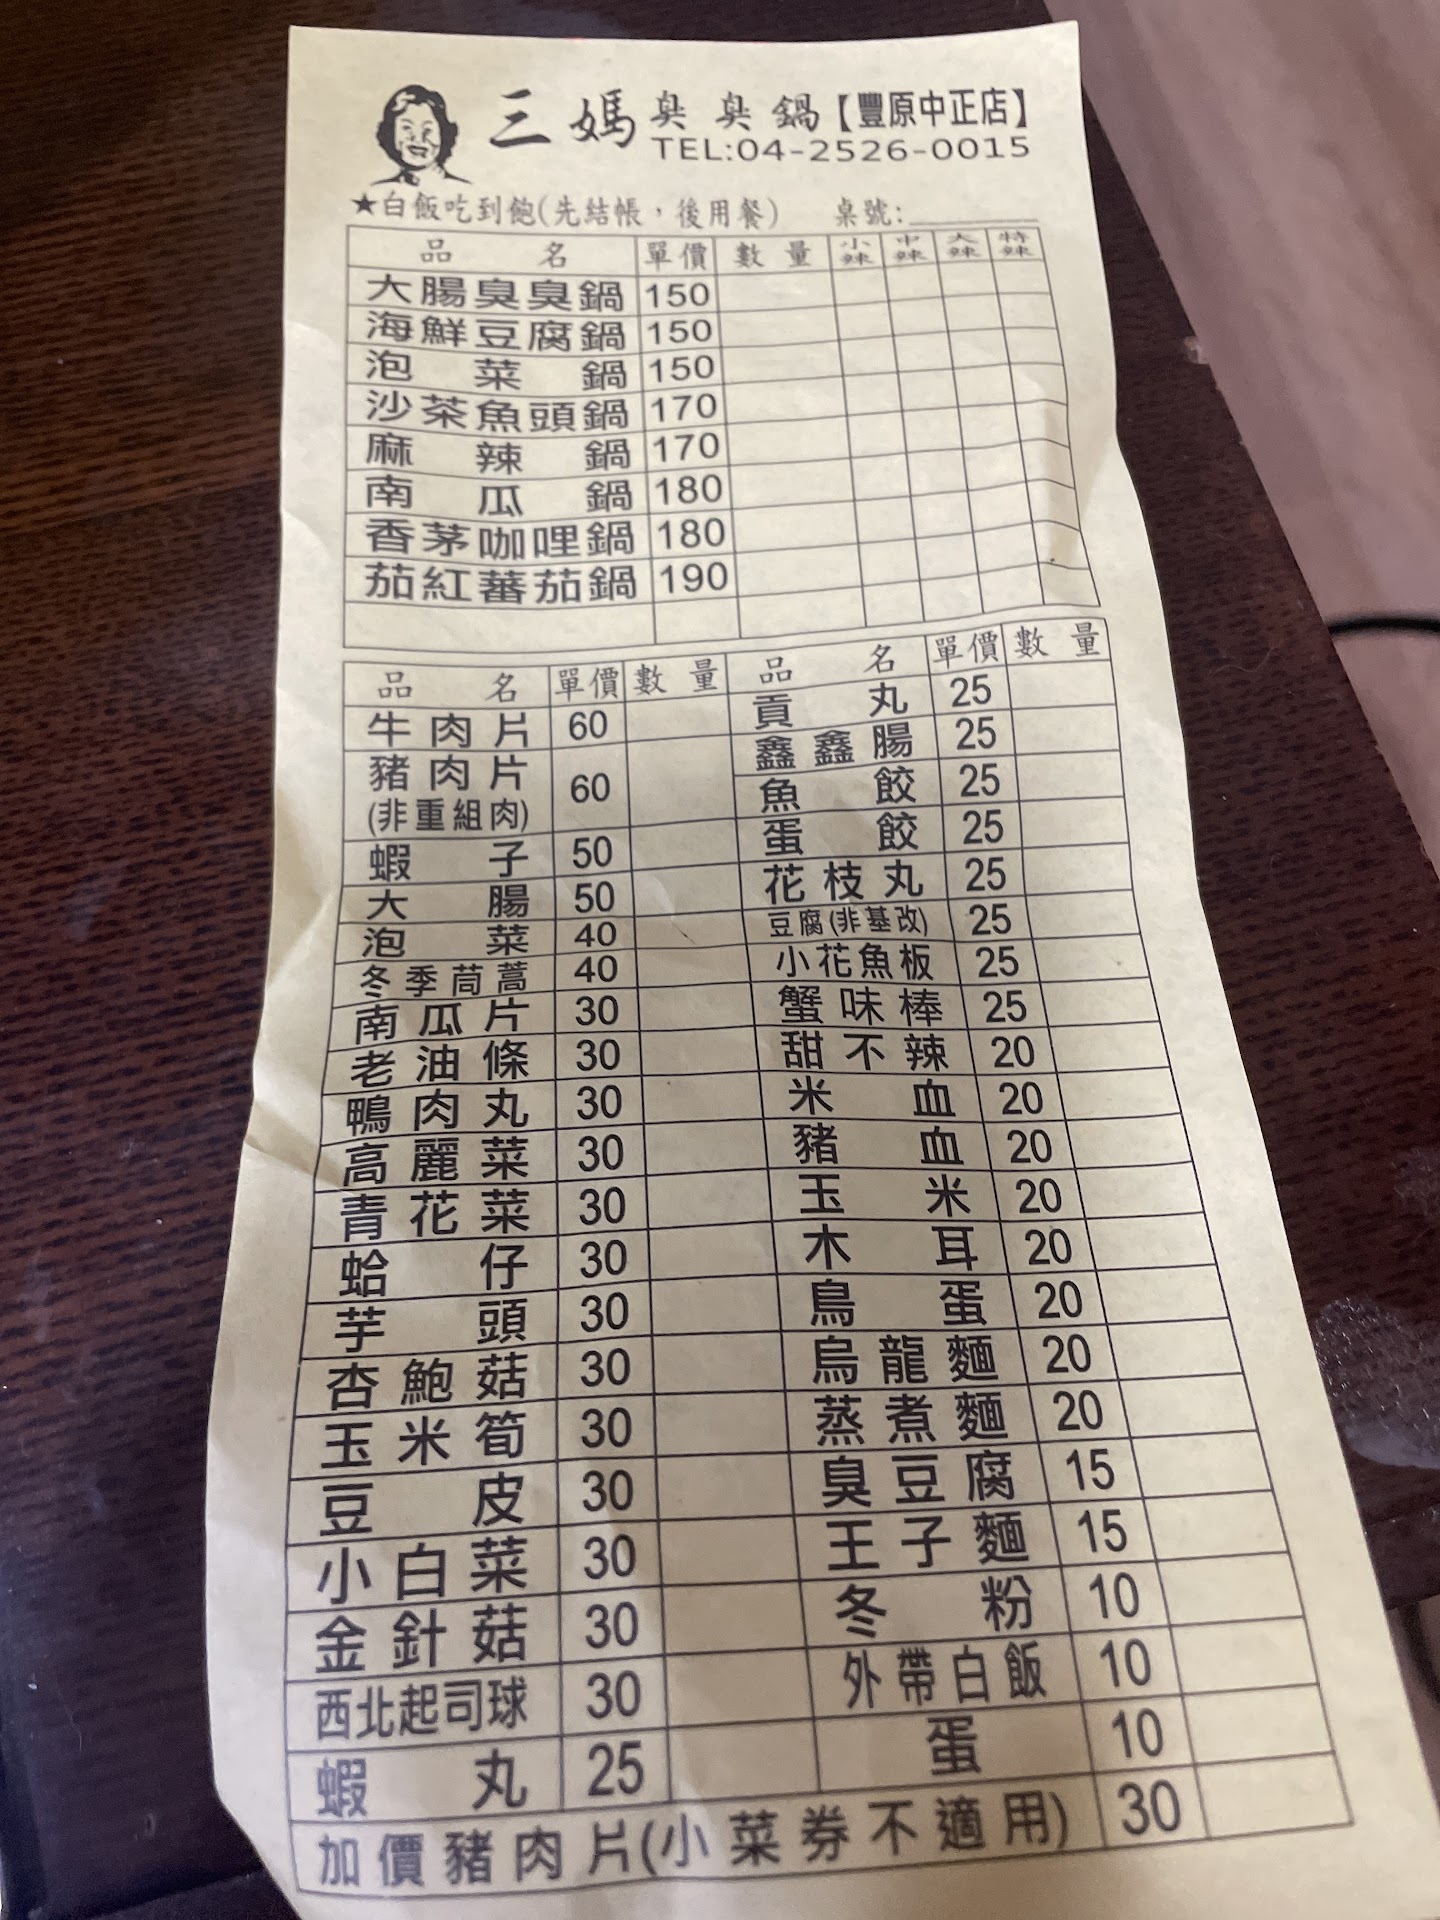 三媽臭臭鍋【豐原中正店】
TEL:04-2526-0015
★白飯吃到飽(先結帳,後用餐) 桌號:
品名 單價 數量 小辣 中辣 大辣 特辣
大腸臭臭鍋 150
海鮮豆腐鍋 150
泡菜鍋 150
沙茶魚頭鍋 170
麻辣鍋 170
南瓜鍋 180
香茅咖哩鍋 180
茄紅蕃茄鍋 190
品名 單價 數量
牛肉片 60
豬肉片 60
(非重組肉)
蝦子 50
大腸 50
泡菜 40
冬季茼蒿 40
南瓜片 30
老油條 30
鴨肉丸 30
高麗菜 30
青花菜 30
蛤仔 30
芋頭 30
杏鮑菇 30
玉米筍 30
豆皮 30
小白菜 30
金針菇 30
西北起司球 30
蝦丸 25
品名 單價 數量
貢丸 25
鑫鑫腸 25
魚餃 25
蛋餃 25
花枝丸 25
豆腐(非基改) 25
小花魚板 25
蟹味棒 25
甜不辣 20
米血 20
豬血 20
玉米 20
木耳 20
鳥蛋 20
烏龍麵 20
蒸煮麵 20
臭豆腐 15
王子麵 15
冬粉 10
外帶白飯 10
蛋 10
加價豬肉片(小菜券不適用) 30